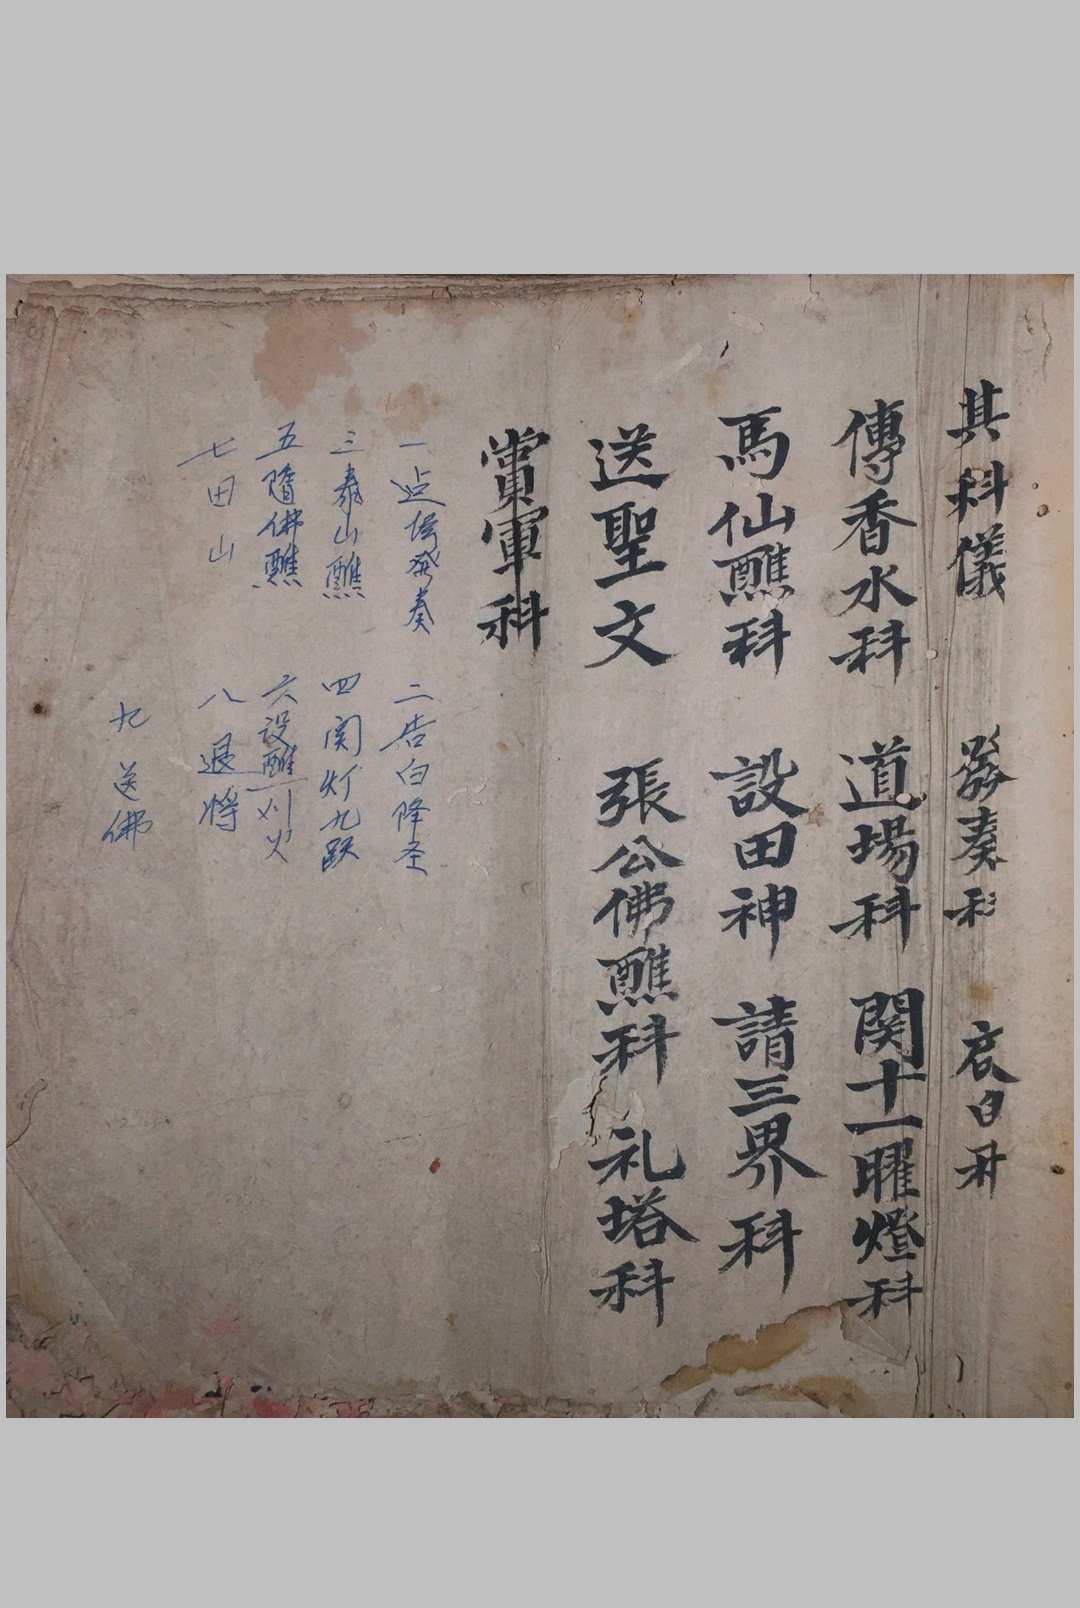 其科儀 發奏科 表白科
傳香水科 道場科 関十一曜燈科
馬仙醮科 設田神 請三界科
送聖文 張公佛醮科 礼塔科
賞軍科
一点場発奏 二告白降圣
三泰山醮 四関灯九
五佛醮 六设醮
七田山 八退将
九送佛